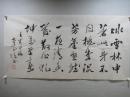 冰雪林中
著此身不
同桃李混
芳塵忽然
一夜清香
發散作乾
坤萬里春